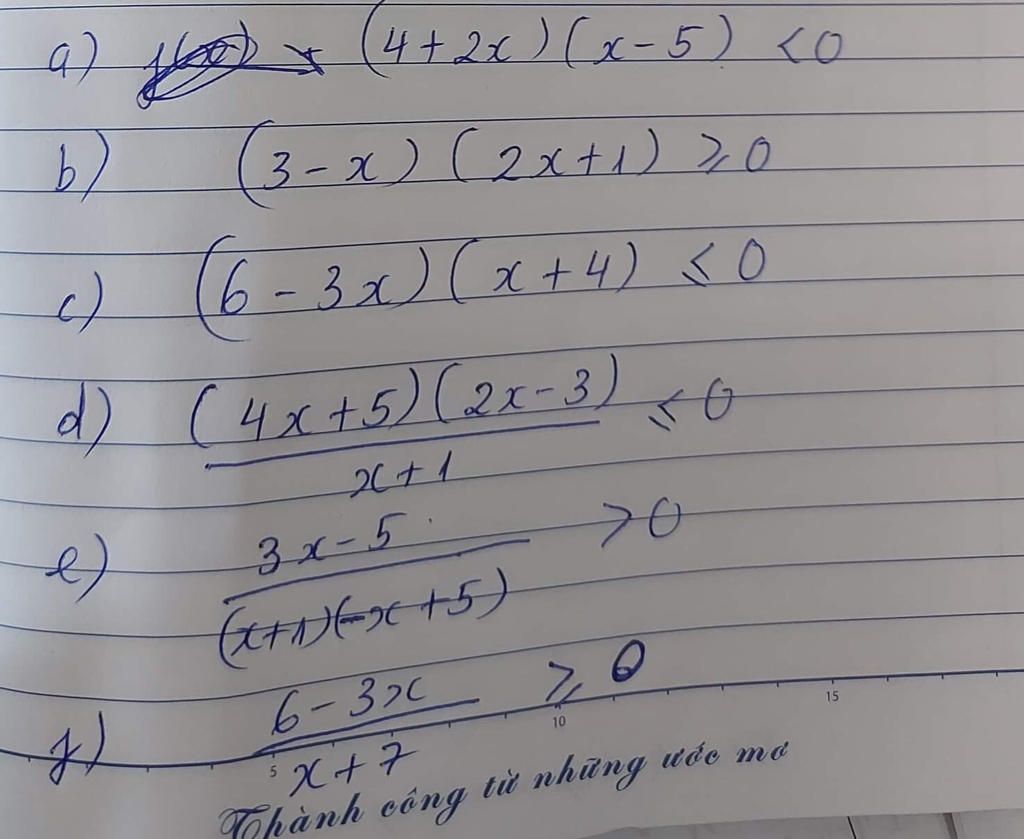 a) (4+2x)(x-5) <0
b) (3-x)(2x+1) ⩾0
c) (6-3x)(x+4) ⩽0
d) (4x+5)(2x-3) ⩽0
x+1
e) 3x-5 >0
(x+1)(-x+5)
f) 6-3x ⩾0
x+7
5 10 15
Thành công từ những ước mơ